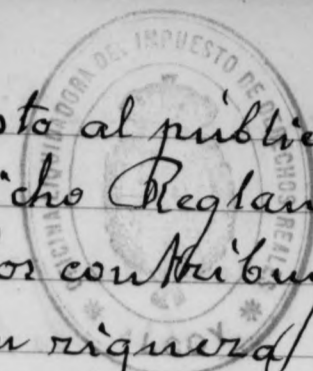 OFICINA LIQUIDADORA DEL IMPUESTO DE DERECHOS REALES
to al públic
icho Reglam
or contribu
riquera/